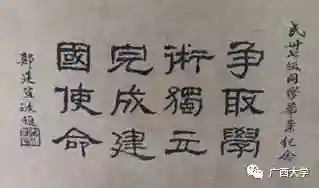 民卅七級同學畢業紀念
争取學
術獨立
完成建
國使命
鄭建宣敬題
广西大学